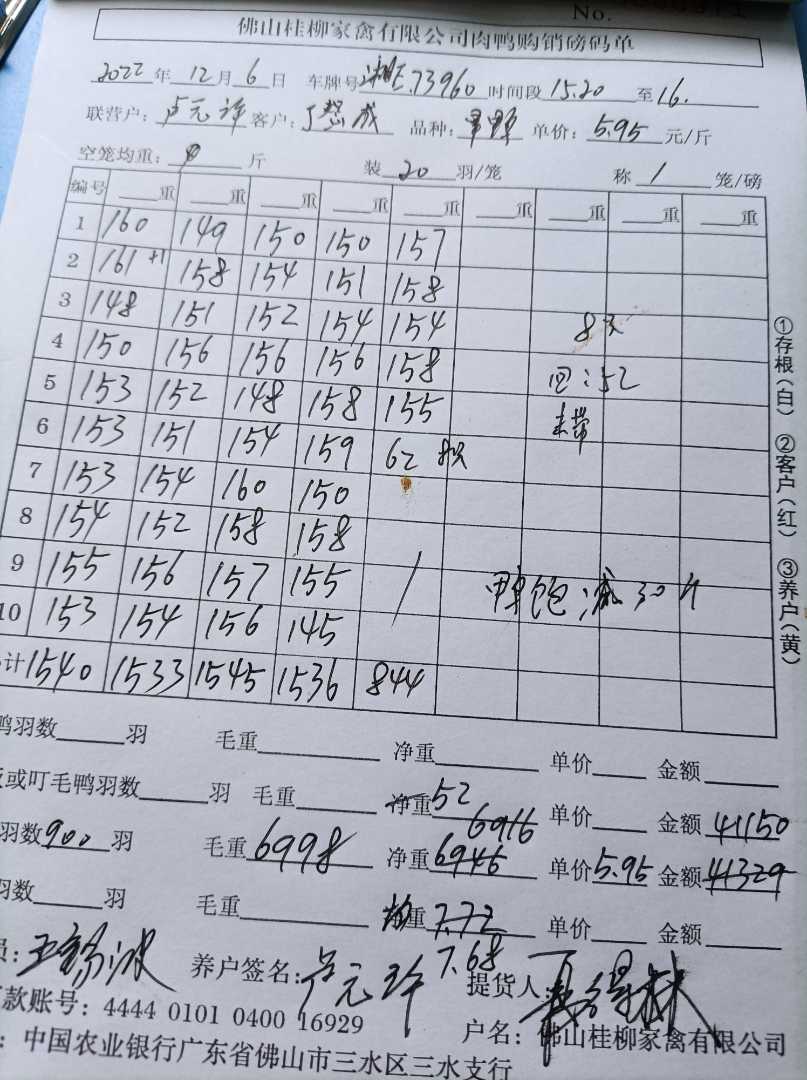 No.
佛山桂柳家禽有限公司肉鸭购销磅码单
2022年12月6日 车牌号湘E.73960时间段15.20至16.
联营户:卢元许客户: 品种: 单价:5.95元/斤
空笼均重:0斤 装20羽/笼 称1笼/磅
编号 重 重 重 重 重 重 重 重 重
1 160 149 150 150 157
2 161+1 158 154 151 158
3 148 151 152 154 154 8只
4 150 156 156 156 158 回:52
5 153 152 148 158 155 未带
6 153 151 154 159 62 8只
7 153 154 160 150
8 154 152 158 158
9 155 156 157 155 / 鸭饱减30斤
10 153 154 156 145
计 1540 1533 1545 1536 844
①存根(白) ②客户(红) ③养户(黄)
鸭羽数 羽 毛重 净重 单价 金额
或叮毛鸭羽数 羽 毛重 净重52 单价 金额41150
6916
羽数900羽 毛重6998 净重6946 单价5.95 金额41329
羽数 羽 毛重 均重7.72 单价 金额
7.68
员: 养户签名:卢元许 提货人:
款账号:4444 0101 0400 16929 户名:佛山桂柳家禽有限公司
:中国农业银行广东省佛山市三水区三水支行